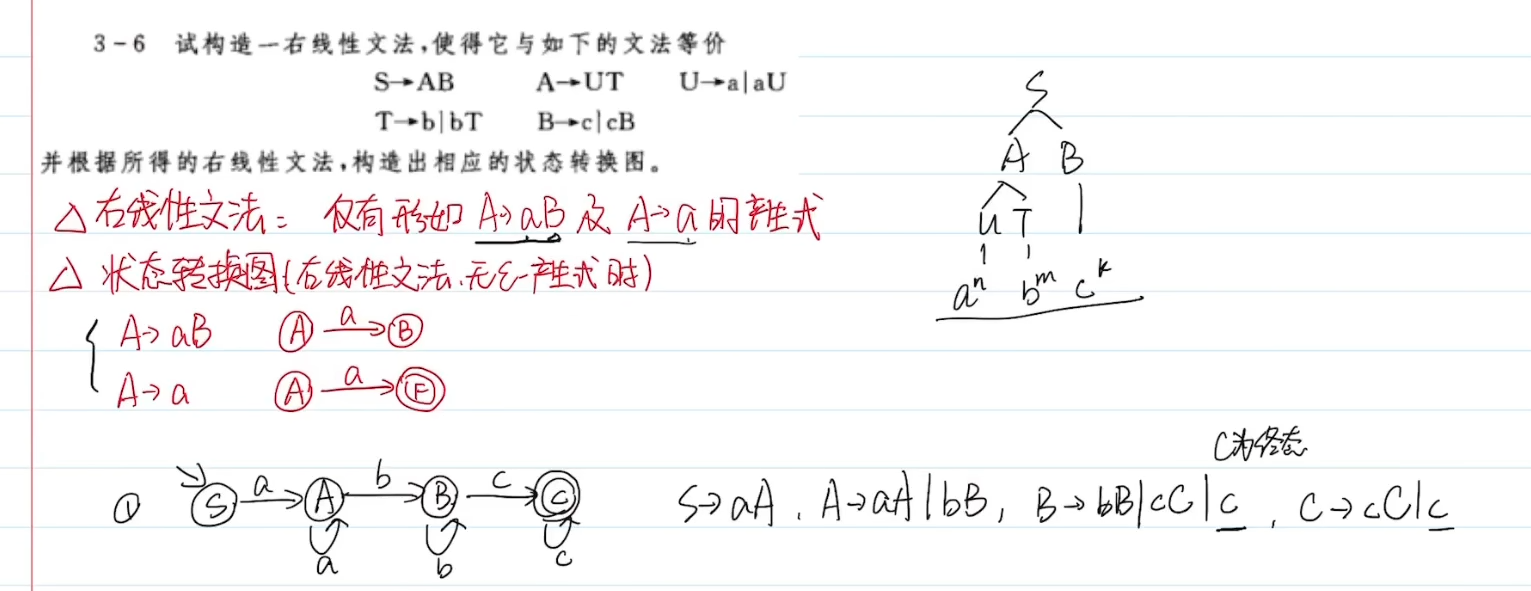 3-6 试构造一右线性文法,使得它与如下的文法等价
S→AB A→UT U→a|aU
T→b|bT B→c|cB
并根据所得的右线性文法,构造出相应的状态转换图。
S
A B
U T
aⁿ bᵐ cᵏ
△ 右线性文法: 仅有形如 A→aB 及 A→a 的产生式
△ 状态转换图(右线性文法、无ε-产生式时)
A→aB A a B
A→a A a F
C为终态
① S a A b B c C S→aA, A→aA|bB, B→bB|cC|c, C→cC|c
a b c